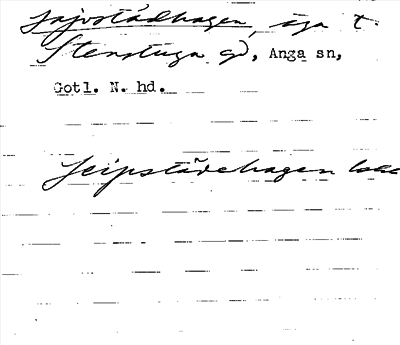 Lajvstädhagen, äga t.
Stenstuga gd, Anga sn,
Gotl. N. hd.
Leipstädehagen